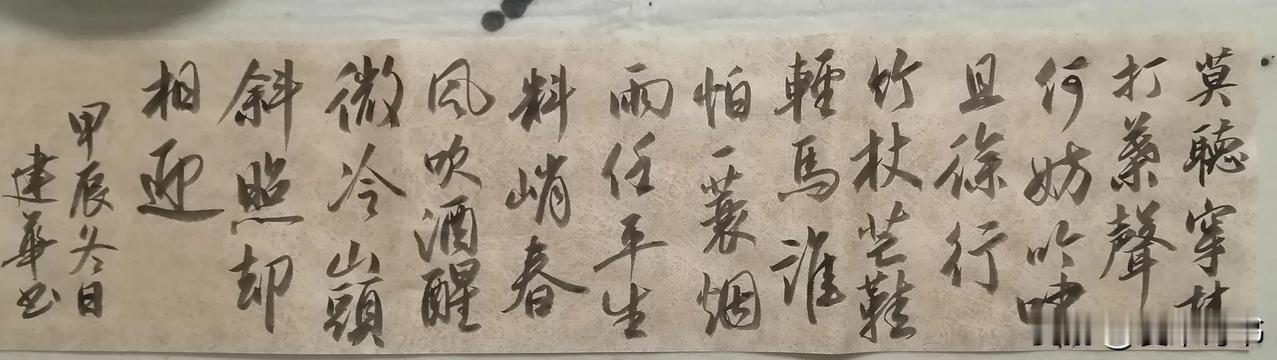 莫聽穿林
打葉聲
何妨吟嘯
且徐行
竹杖芒鞋
輕馬誰
怕一蓑烟
雨任平生
料峭春
風吹酒醒
微冷山頭
斜照却
相迎
甲辰冬日
建華书